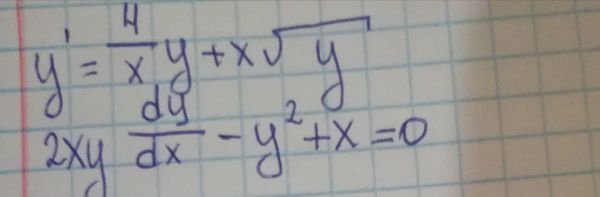 y' = 4/x y + x√y
2xy dy/dx - y² + x = 0